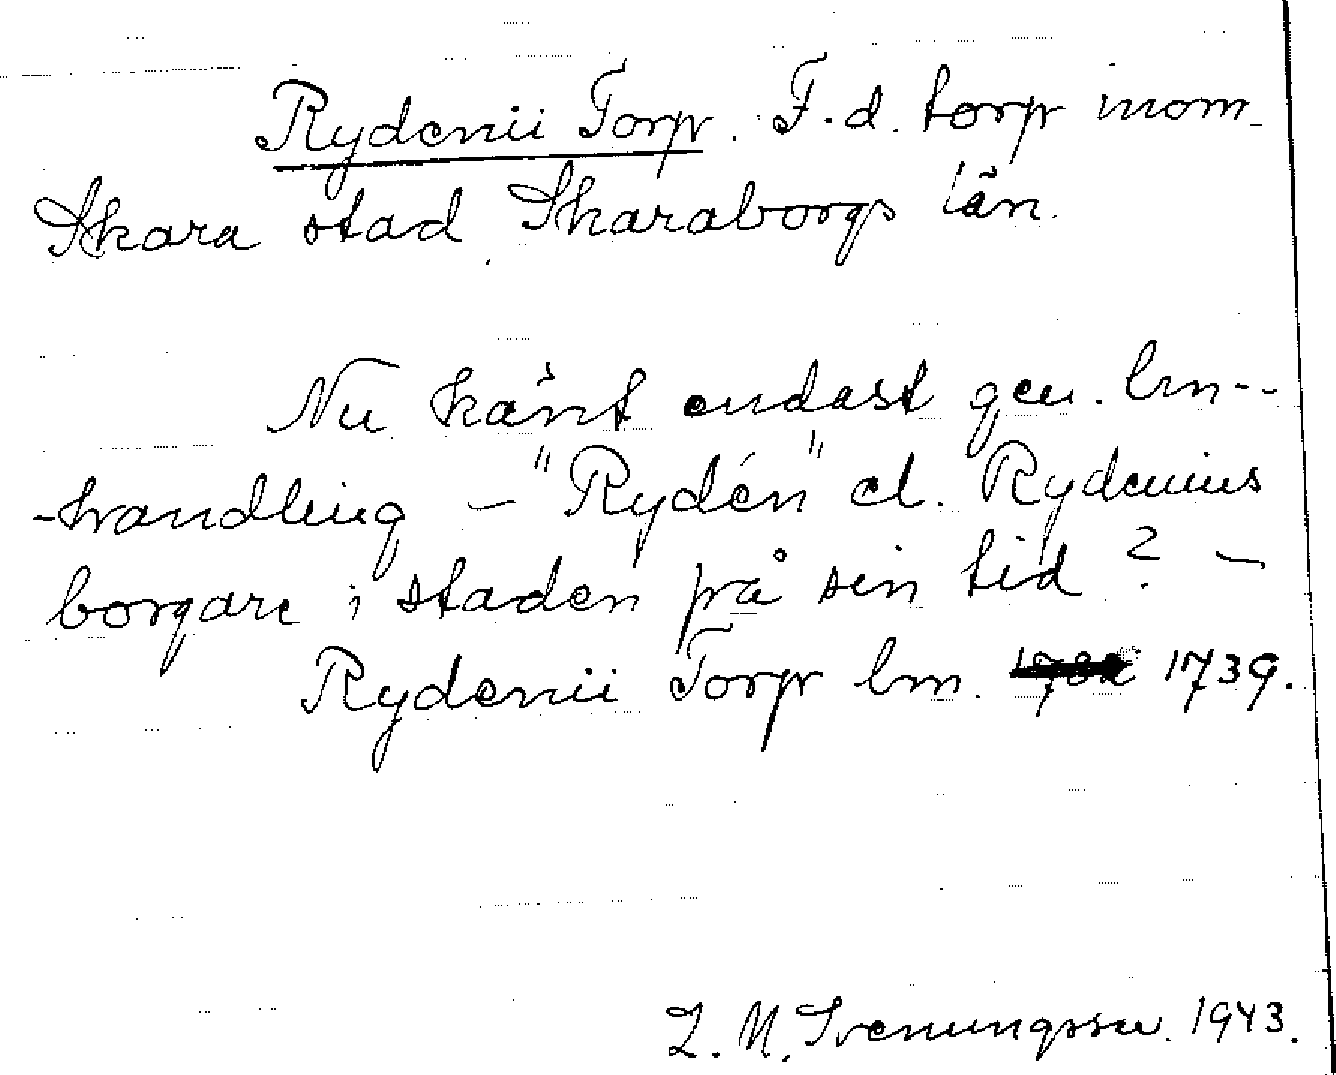 Rydenii Torp. F.d. torp inom
Skara stad, Skaraborgs län.
Nu känt endast gen. lm-
-handling – "Rydén" el. Rydenius
borgare i staden på sin tid? –
Rydenii Torp lm. 1739.
L. M. Svenungsson. 1943.